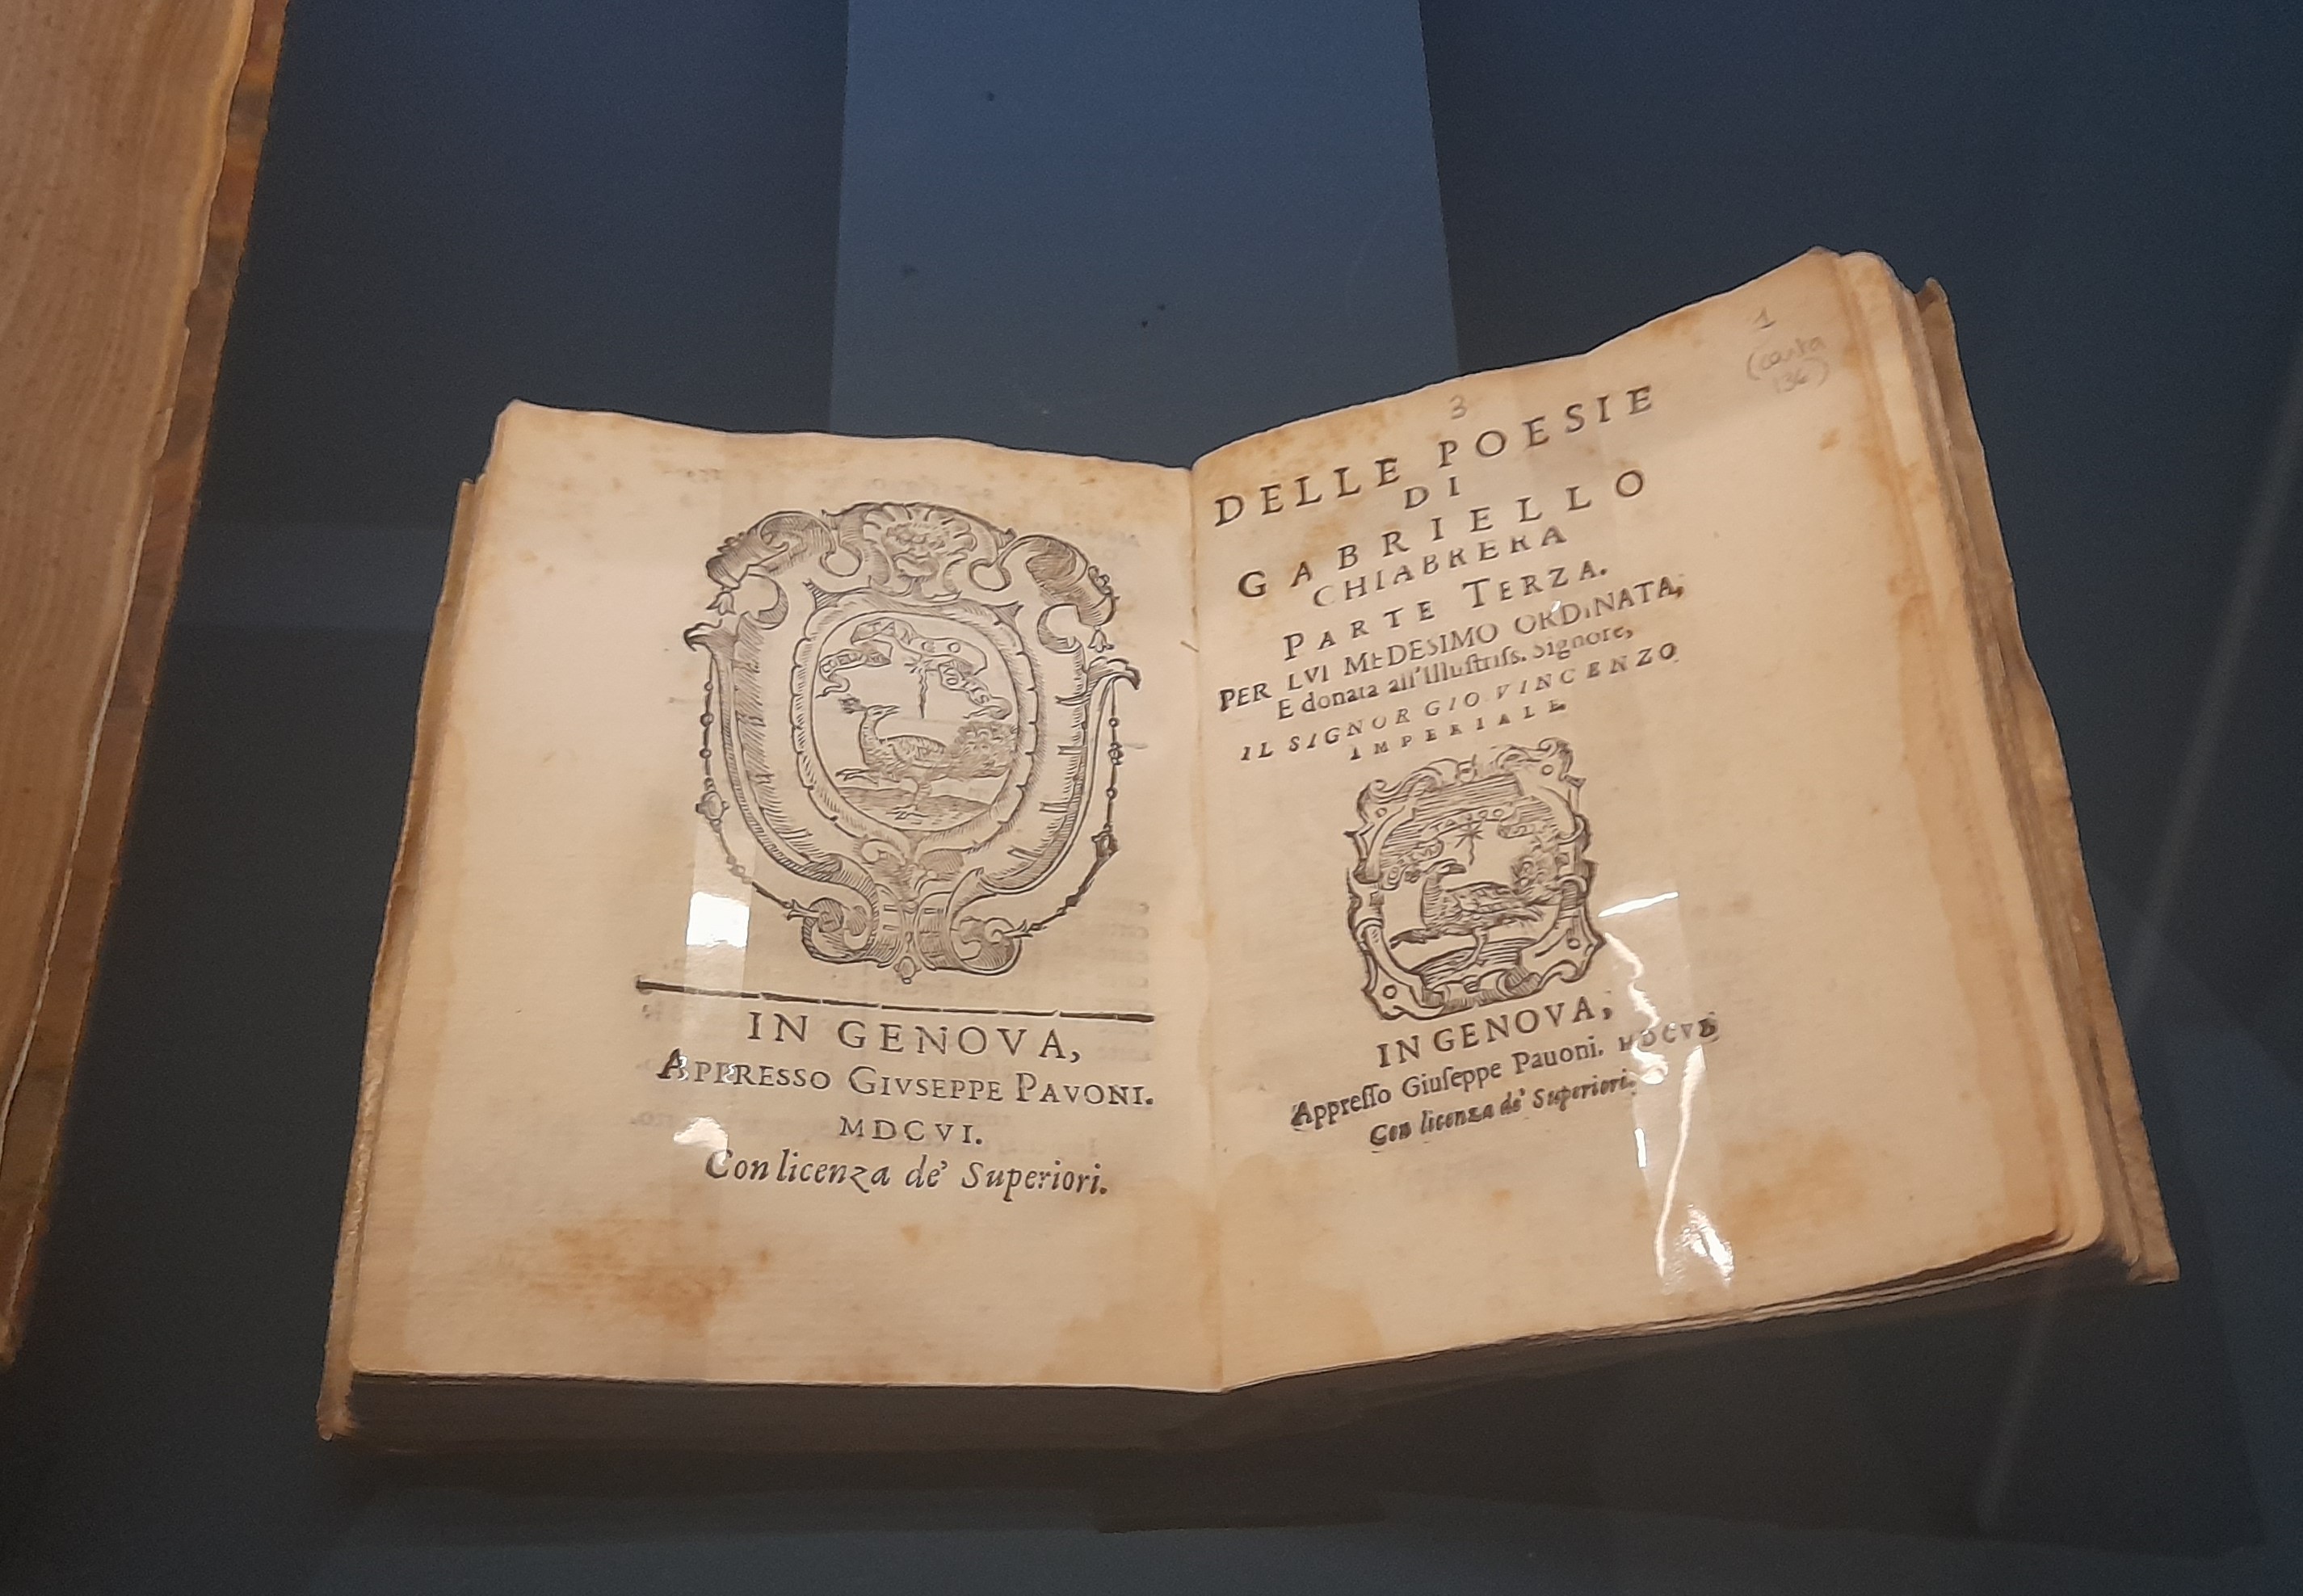 IN GENOVA,
APPRESSO GIVSEPPE PAVONI.
MDCVI.
Con licenza de' Superiori.
1
(carta
136)
3
DELLE POESIE
DI
GABRIELLO
CHIABRERA
PARTE TERZA.
PER LVI MEDESIMO ORDINATA,
E donata all'Illuſtriſs. Signore,
IL SIGNOR GIO. VINCENZO
IMPERIALE
IN GENOVA,
Appreſſo Giuſeppe Pauoni. MDCVI
Con licenza de' Superiori.